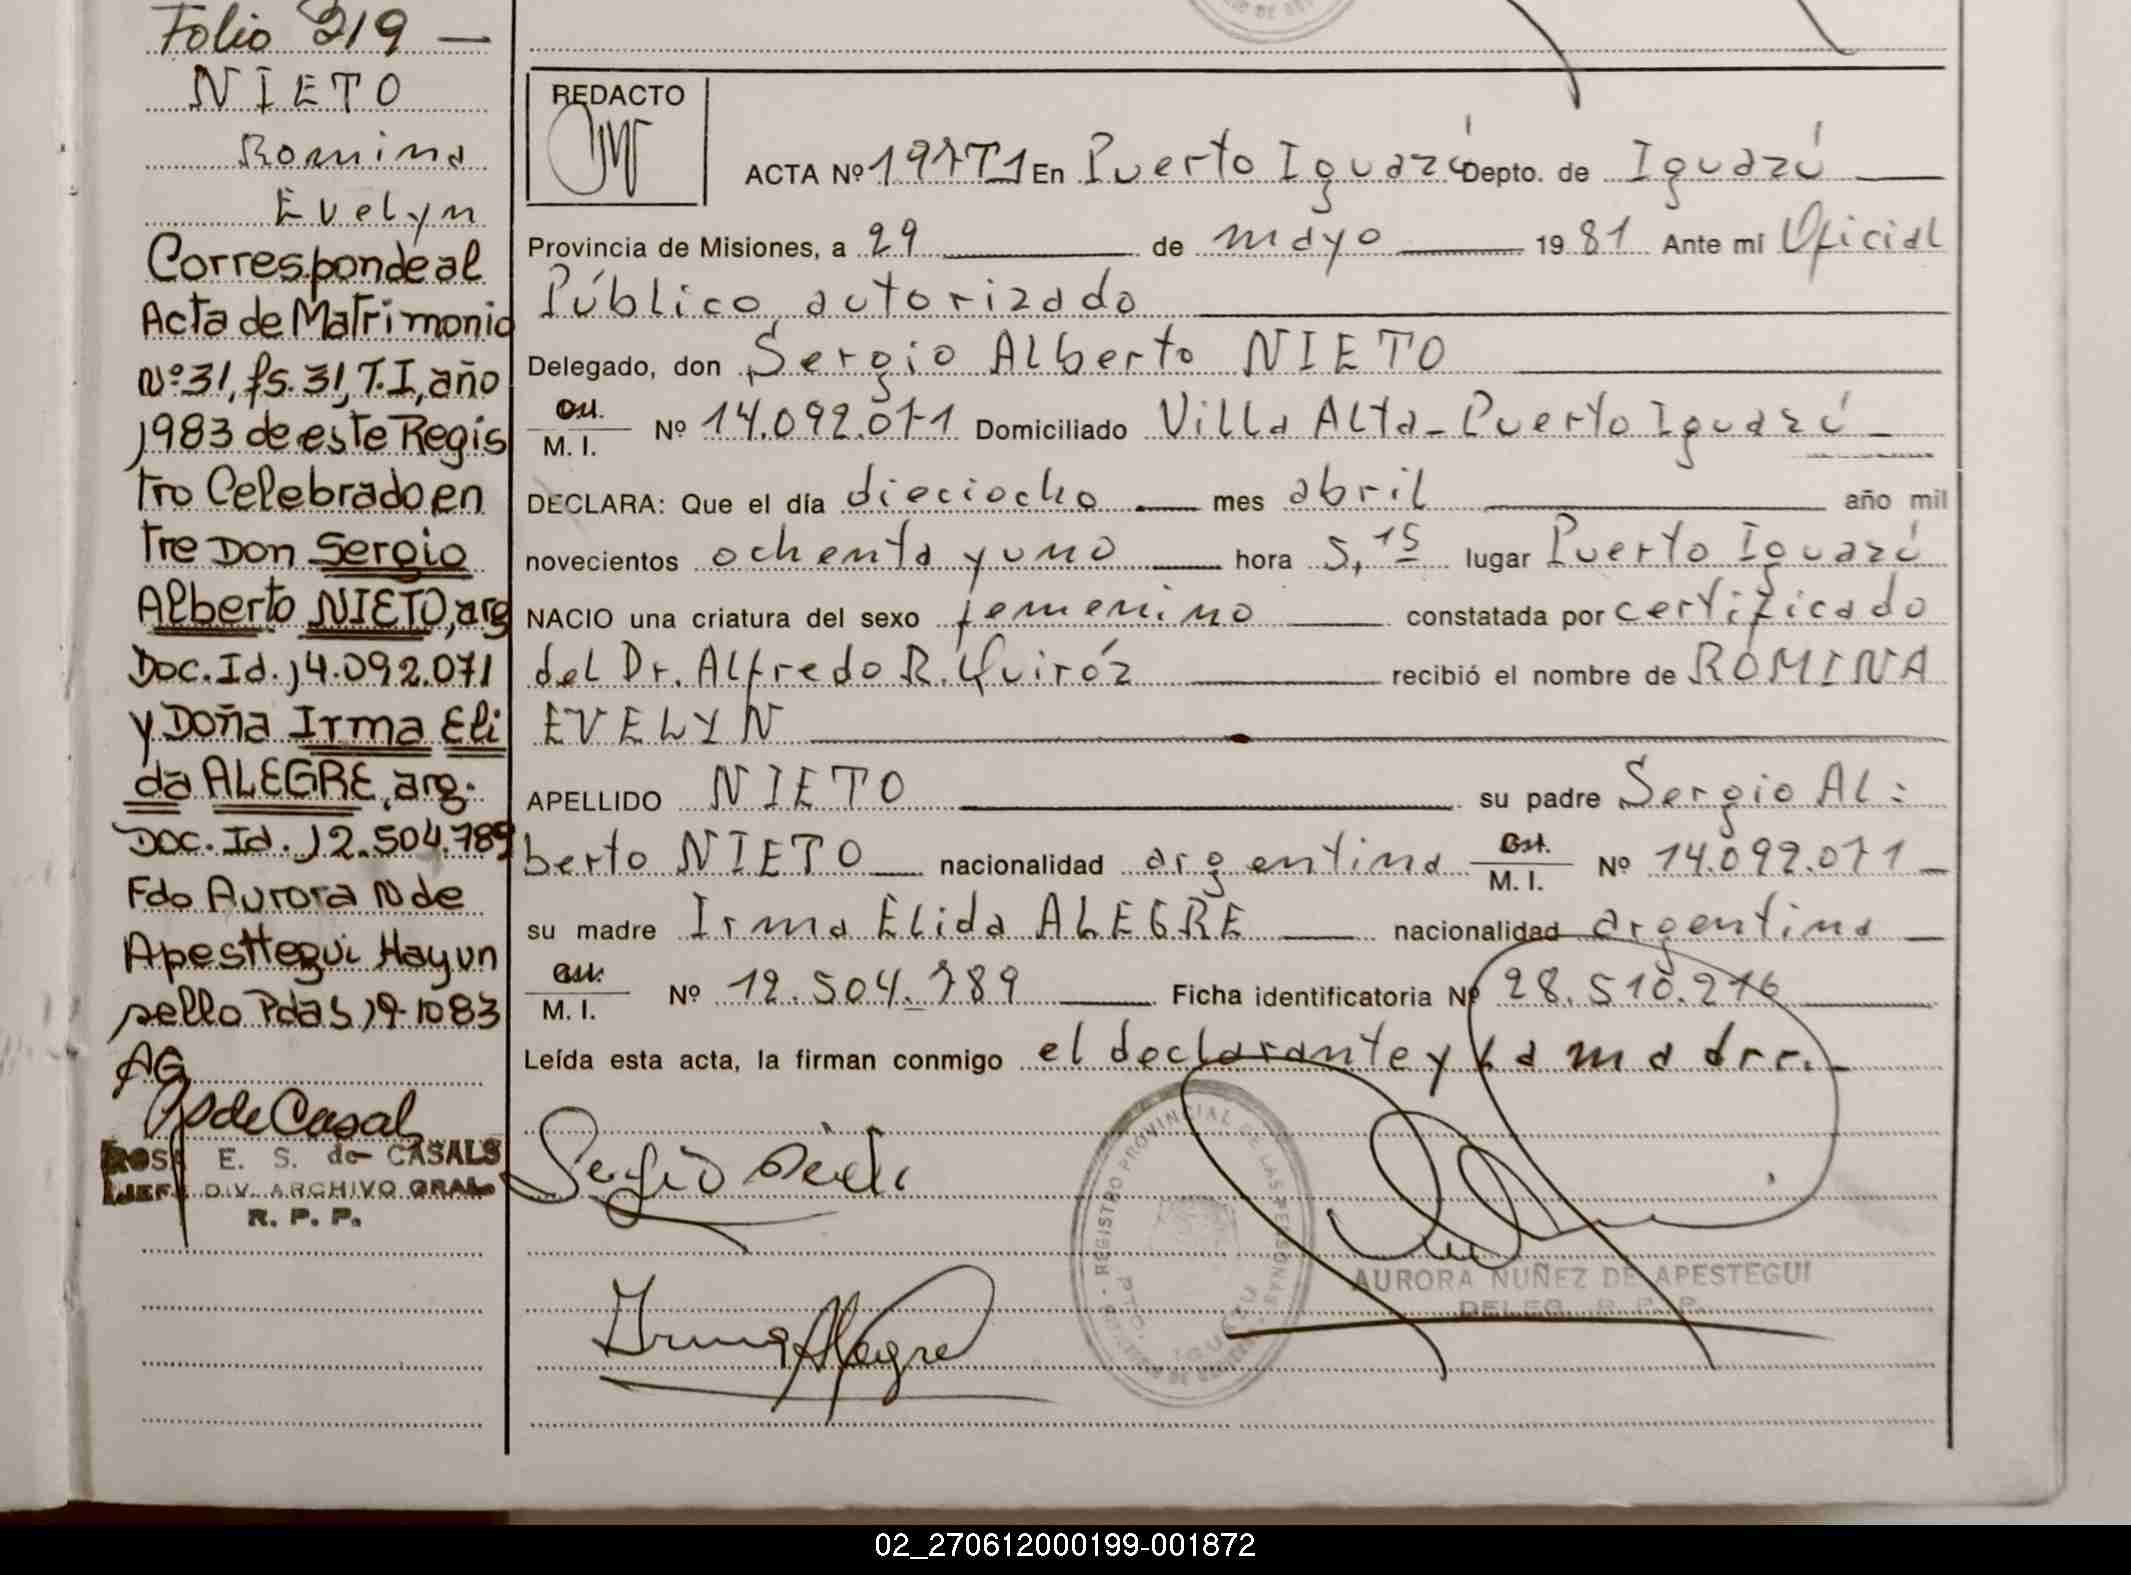 Folio 219 —
NIETO
Romina
Evelyn
Corresponde al
Acta de Matrimonio
Nº 31, fs. 31, T. I, año
1983 de este Regis
tro Celebrado en
tre Don Sergio
Alberto NIETO, arg
Doc. Id. 14.092.071
y Doña Irma Eli
da ALEGRE, arg.
Doc. Id. 12.504.789
Fdo Aurora N de
Apesttegui Hay un
sello Pdas 19-10 83
AG
de Casal
ROSA E. S. de CASALS
JEFE DIV. ARCHIVO GRAL
R. P. P.
REDACTO
ACTA Nº 197T1 En Puerto Iguazú Depto. de Iguazú
Provincia de Misiones, a 29 de mayo 1981 Ante mí Oficial
Público autorizado
Delegado, don Sergio Alberto NIETO
M. I. Nº 14.092.071 Domiciliado Villa Alta - Puerto Iguazú -
DECLARA: Que el día dieciocho mes abril año mil
novecientos ochenta y uno hora 5,15 lugar Puerto Iguazú
NACIO una criatura del sexo femenino constatada por certificado
del Dr. Alfredo R. Quiróz recibió el nombre de ROMINA
EVELYN
APELLIDO NIETO su padre Sergio Al:
berto NIETO nacionalidad argentina M. I. Nº 14.092.071 -
su madre Irma Elida ALEGRE nacionalidad argentina
M. I. Nº 12.504.789 Ficha identificatoria Nº 28.510.276
Leída esta acta, la firman conmigo el declarante y la madre. -
Sergio
Irma Alegre
REGISTRO PROVINCIAL DE LAS PERSONAS
AURORA NUÑEZ DE APESTEGUI
DELEG. R. P. P.
02_270612000199-001872